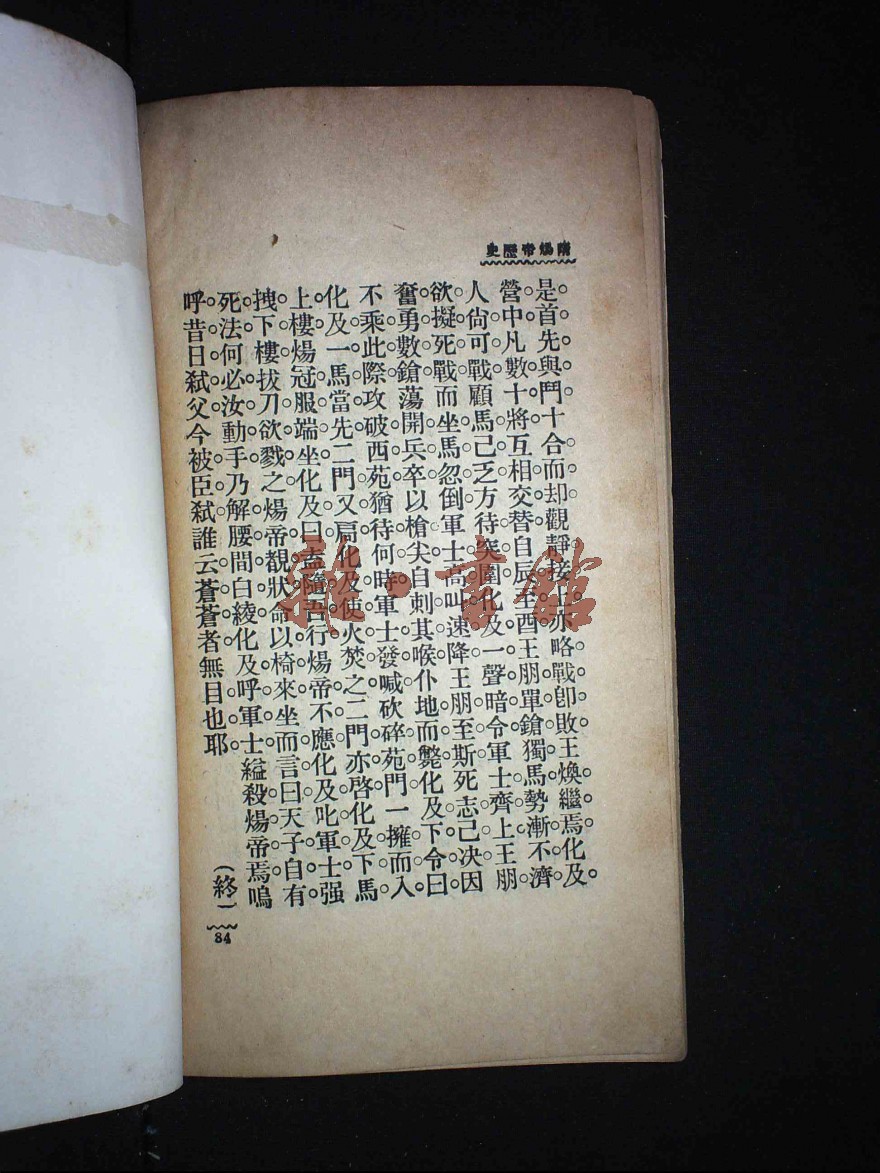 隋煬帝歷史
是。首先與鬥十合而却。觀靜接上。亦略戰卽敗。王煥繼焉。化及。
營中凡數十將。互相交替。自辰至酉。王朋單鎗獨馬。勢漸不濟。
人尙可戰。顧馬己乏。方待突圍。化及一聲暗令。軍士齊上。王朋
欲擬死戰。而坐馬忽倒。軍士高叫速降。王朋至斯。死志已決。因
奮勇數鎗。蕩開兵卒。以槍尖自刺其喉。仆地而斃。化及下令曰。
不乘此際攻破西苑。猶待何時。軍士發喊。砍碎苑門。一擁而入
化及一馬當先。二門又扃。化及使火焚之。二門亦啓。化及下馬
上樓。煬冠服端坐。化及曰。盍隨吾行。煬帝不應。化及叱軍士强
拽下樓。拔刀欲戮之。煬帝覩狀。命以椅來。坐而言曰。天子自有
死法。何必汝動手。乃解腰間白綾。化及呼軍士縊殺煬帝焉。嗚
呼。昔日弒父。今被臣弒。誰云蒼蒼者無目也耶。
(終)
84
雜·書館